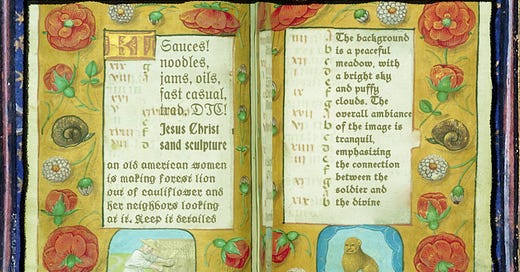 Sauces!
noodles,
jams, oils,
fast casual,
trad, DTC!
Jesus Christ
sand sculpture
an old american women
is making forest lion
out of cauliflower and
her neighbors looking
at it. Keep it detailed
The background
is a peaceful
meadow, with
a bright sky
and puffy
clouds. The
overall ambiance
of the image is
tranquil,
emphasizing
the connection
between the
soldier and
the divine